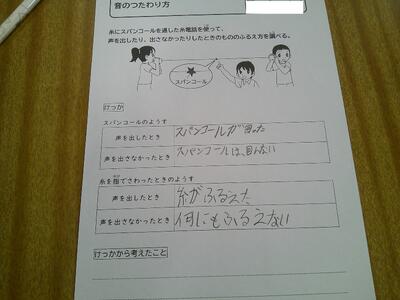 音のつたわり方
糸にスパンコールを通した糸電話を使って、
声を出したり、出さなかったりしたときのもののふるえ方を調べる。
スパンコール
けっか
スパンコールのようす
声を出したとき
スパンコールが回った
声を出さなかったとき
スパンコールは、回んない
糸を指でさわったときのようす
声を出したとき
糸がふるえた
声を出さなかったとき
何にもふるえない
けっかから考えたこと